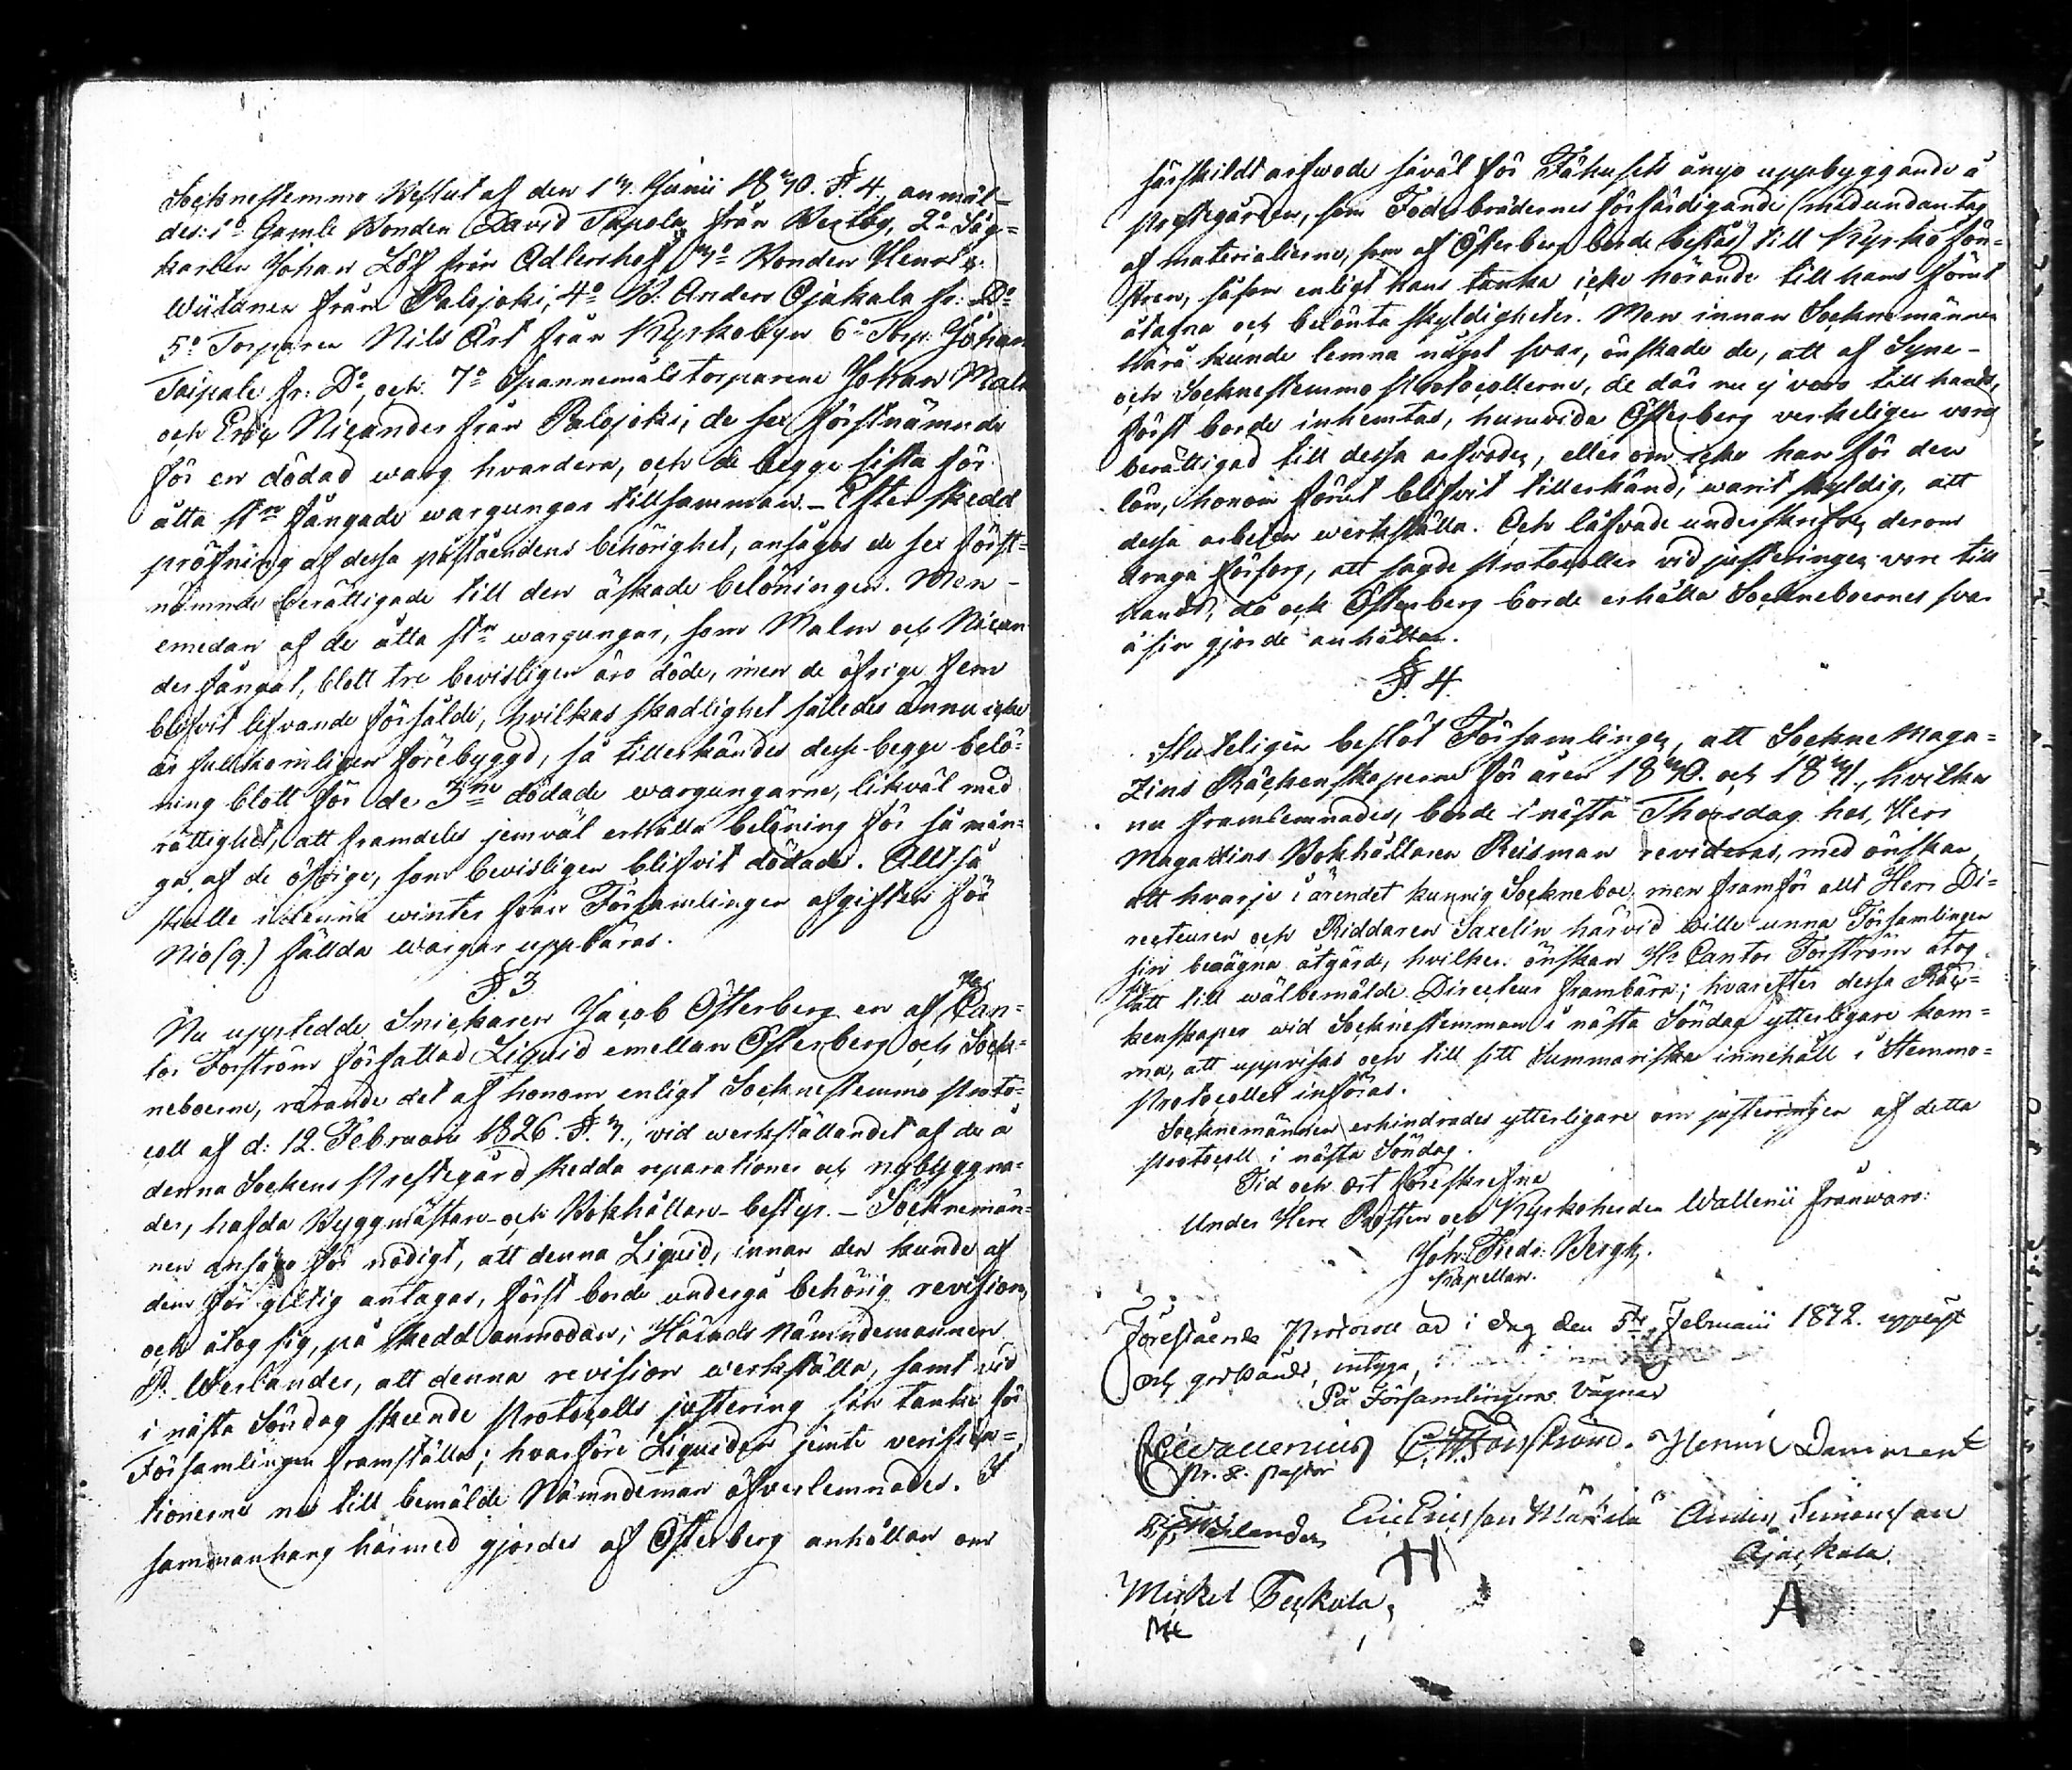 Sockenstemmo Beslut af den 13. Junii 1830. §. 4. anmäl-
des: 1o Gamle Bonden David Tapola från Vestby, 2o Såg-
karlen Johan Löf från Adlershof, 3o Bonden Henr:
Wiitanen från Palojoki, 4o B. Anders Ojakala fr: Do
5o Torparen Nils Ärt från Kyrkobyn 6o Torp. Johan
Taipale fr: Do, och 7o Spannemåls torparene Johan Malm
och Eric Nicander från Palojoki; de sex förstnämnde
för en dödad warg hvardera, och de begge sista för
åtta st. fångade wargungar tillsamman. – Efter skedd
pröfning af dessa påståendens behörighet, ansågos de sex först-
nämnde berättigade till den äskade belöningen. Men –
emedan af de åtta st. wargungar, som Malm och Nican-
der fångat, blott tre bevisligen äro döde, men de öfrige fem
blifvit lefvande försålde, hvilkas skadlighet således ännu icke
är fullkomligen förebyggd, så tillerkändes desse begge belö-
ning blott för de 3ne dödade wargungarne, likväl med
rättighet, att framdeles jemväl erhålla belöning för så mån-
ga af de öfrige, som bevisligen blifvit dödade. Alltså
skulle i denna winter från Församlingen afgiften för
Nio (9.) fällda wargar uppbäras.
§ 3
Nu uppstedde Snickaren Jacob Österberg en af Hr Can-
tor Forström författad Liquid emellan Österberg och Sock-
neboerne, rörande det af honom enligt Sockenstemmo Proto-
coll af d: 12. Februarii 1826. §. 3., vid werkställandet af de å
denna Sockens Prestegård skedda reparationer och nybyggna-
der, hafda Byggmästare- och Bokhållare-bestyr. – Socknemän-
nen ansågo för nödigt, att denna Liquid, innan den kunde af
dem för giltig antagas, först borde undergå behörig revision,
och åtog sig, på skedd anmodan, Härads Nämndemannen
P. Werlander, att denna revision werkställa, samt vid
i nästa Söndag skeende Protocolls justering sin tanke för
Församlingen framställa; hvarföre Liquiden jemte verifica-
tionerne nu till bemälde Nämndeman öfverlemnades. I
sammanhang härmed gjordes af Österberg anhållan om
särskildt arfwode såväl för Fähusets ånyo uppbyggande å
Prestegården, som Foderbrädernes förfärdigande (med undantag
af materialierne, som af Österberg borde bestås) till Kyrko fön-
stren, såsom enligt hans tanka icke hörande till hans förut
åtagna och belönta skyldigheter. Men innan Socknemännen
härå kunde lemna något svar, önskade de, att af Syne-
och Sockenstemmo Protocollerne, de där nu ej voro till hands,
först borde inhemtas, huruvida Österberg verkeligen vore
berättigad till dessa arfvoden, eller om icke han för den
lön, honom förut blifvit tillerkänd, warit skyldig, att
dessa arbeten werkställa. Och låfvade underskrifven derom
draga försorg, att sagde Protocoller vid justeringen vore till
hands, då och Österberg borde erhålla Sockneboernes svar
å sin gjorde anhållan.
§. 4.
Sluteligen beslöt Församlingen, att Sockne Maga-
zins Räckenskaperne för åren 1830. och 1831., hvilka
nu framlemnades, borde i nästa Thorsdag hos Herr
Magazins Bokhållaren Reisman revideras, med önskan,
att hvarje i ärendet kunnig Sockneboe, men framför allt Herr Di-
recteuren och Riddaren Saxelin härvid ville unna Församlingen
sin benägna åtgärd, hvilken önskan Hr Cantor Forström åtog
sig att till wälbemälde Directeur frambära; hvarefter dessa Räc-
kenskaper wid Sockenstemman i nästa Söndag ytterligare kom-
ma, att uppvisas och till sitt summariska innehåll i Stemmo-
Protocollet införas.
Socknemännen erhindrades ytterligare om justeringen af detta
Protocoll i nästa Söndag.
Tid och ort föreskrefne
Under Herr Prosten och Kyrkoherden Wallenii frånwaro:
Joh: Fredr: Bergh.
Kapellan.
Förestående Protocoll är i dag den 5te Februarii 1832. uppläst
och godkändt, intyga,
På Församlingens Vägnar
Wallenius C. Forström. Henric Dammert
Pr. & Pastor
P. Werlander Eric Ericsson Mårtila Anders Simonsson
H Ojackala
Mickel Teckala A